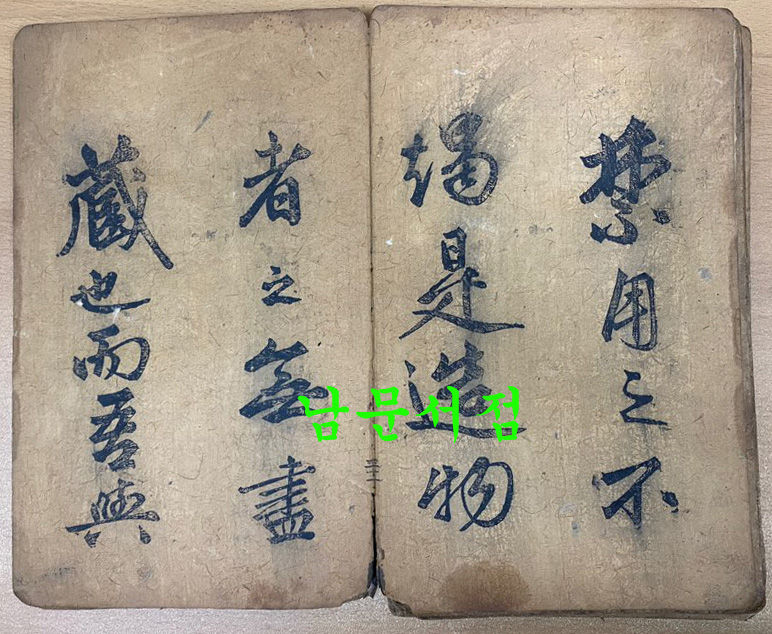 禁用之不
竭是造物
者之無盡
藏也而吾與
남문서점